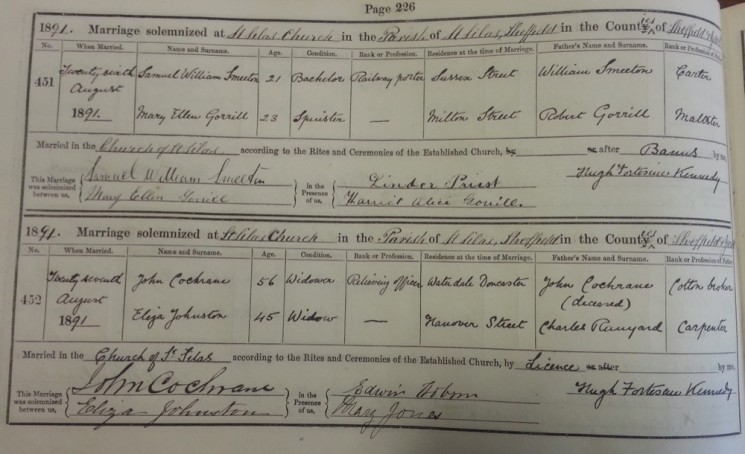 Page 226
1891. Marriage solemnized at St Silas Church in the Parish of St Silas, Sheffield in the County of Sheffield
No. When Married. Name and Surname. Age. Condition. Rank or Profession. Residence at the time of Marriage. Father's Name and Surname. Rank or Profession of Father
451 Twenty sixth Samuel William Smeeton 21 Bachelor Railway porter Sussex Street William Smeeton Carter
August
1891 Mary Ellen Gorrill 23 Spinster — Milton Street Robert Gorrill Maltster
Married in the Church of St Silas according to the Rites and Ceremonies of the Established Church, by or after Banns by me,
This Marriage was solemnized between us, Samuel William Smeeton In the Presence of us, Linder Priest Hugh Fortescue Kennedy
Mary Ellen Gorrill Harriet Alice Gorrill.
1891. Marriage solemnized at St Silas Church in the Parish of St Silas, Sheffield in the County of Sheffield
No. When Married. Name and Surname. Age. Condition. Rank or Profession. Residence at the time of Marriage. Father's Name and Surname. Rank or Profession of Father
452 Twenty seventh John Cochrane 56 Widower Relieving officer Waterdale Doncaster John Cochrane Cotton broker
August (deceased)
1891 Eliza Johnston 45 Widow — Hanover Street Charles Carpenter
Married in the Church of St Silas according to the Rites and Ceremonies of the Established Church, by Licence or after by me,
This Marriage was solemnized between us, John Cochrane In the Presence of us, Edwin Hugh Fortescue Kennedy
Eliza Johnston Mary Jones